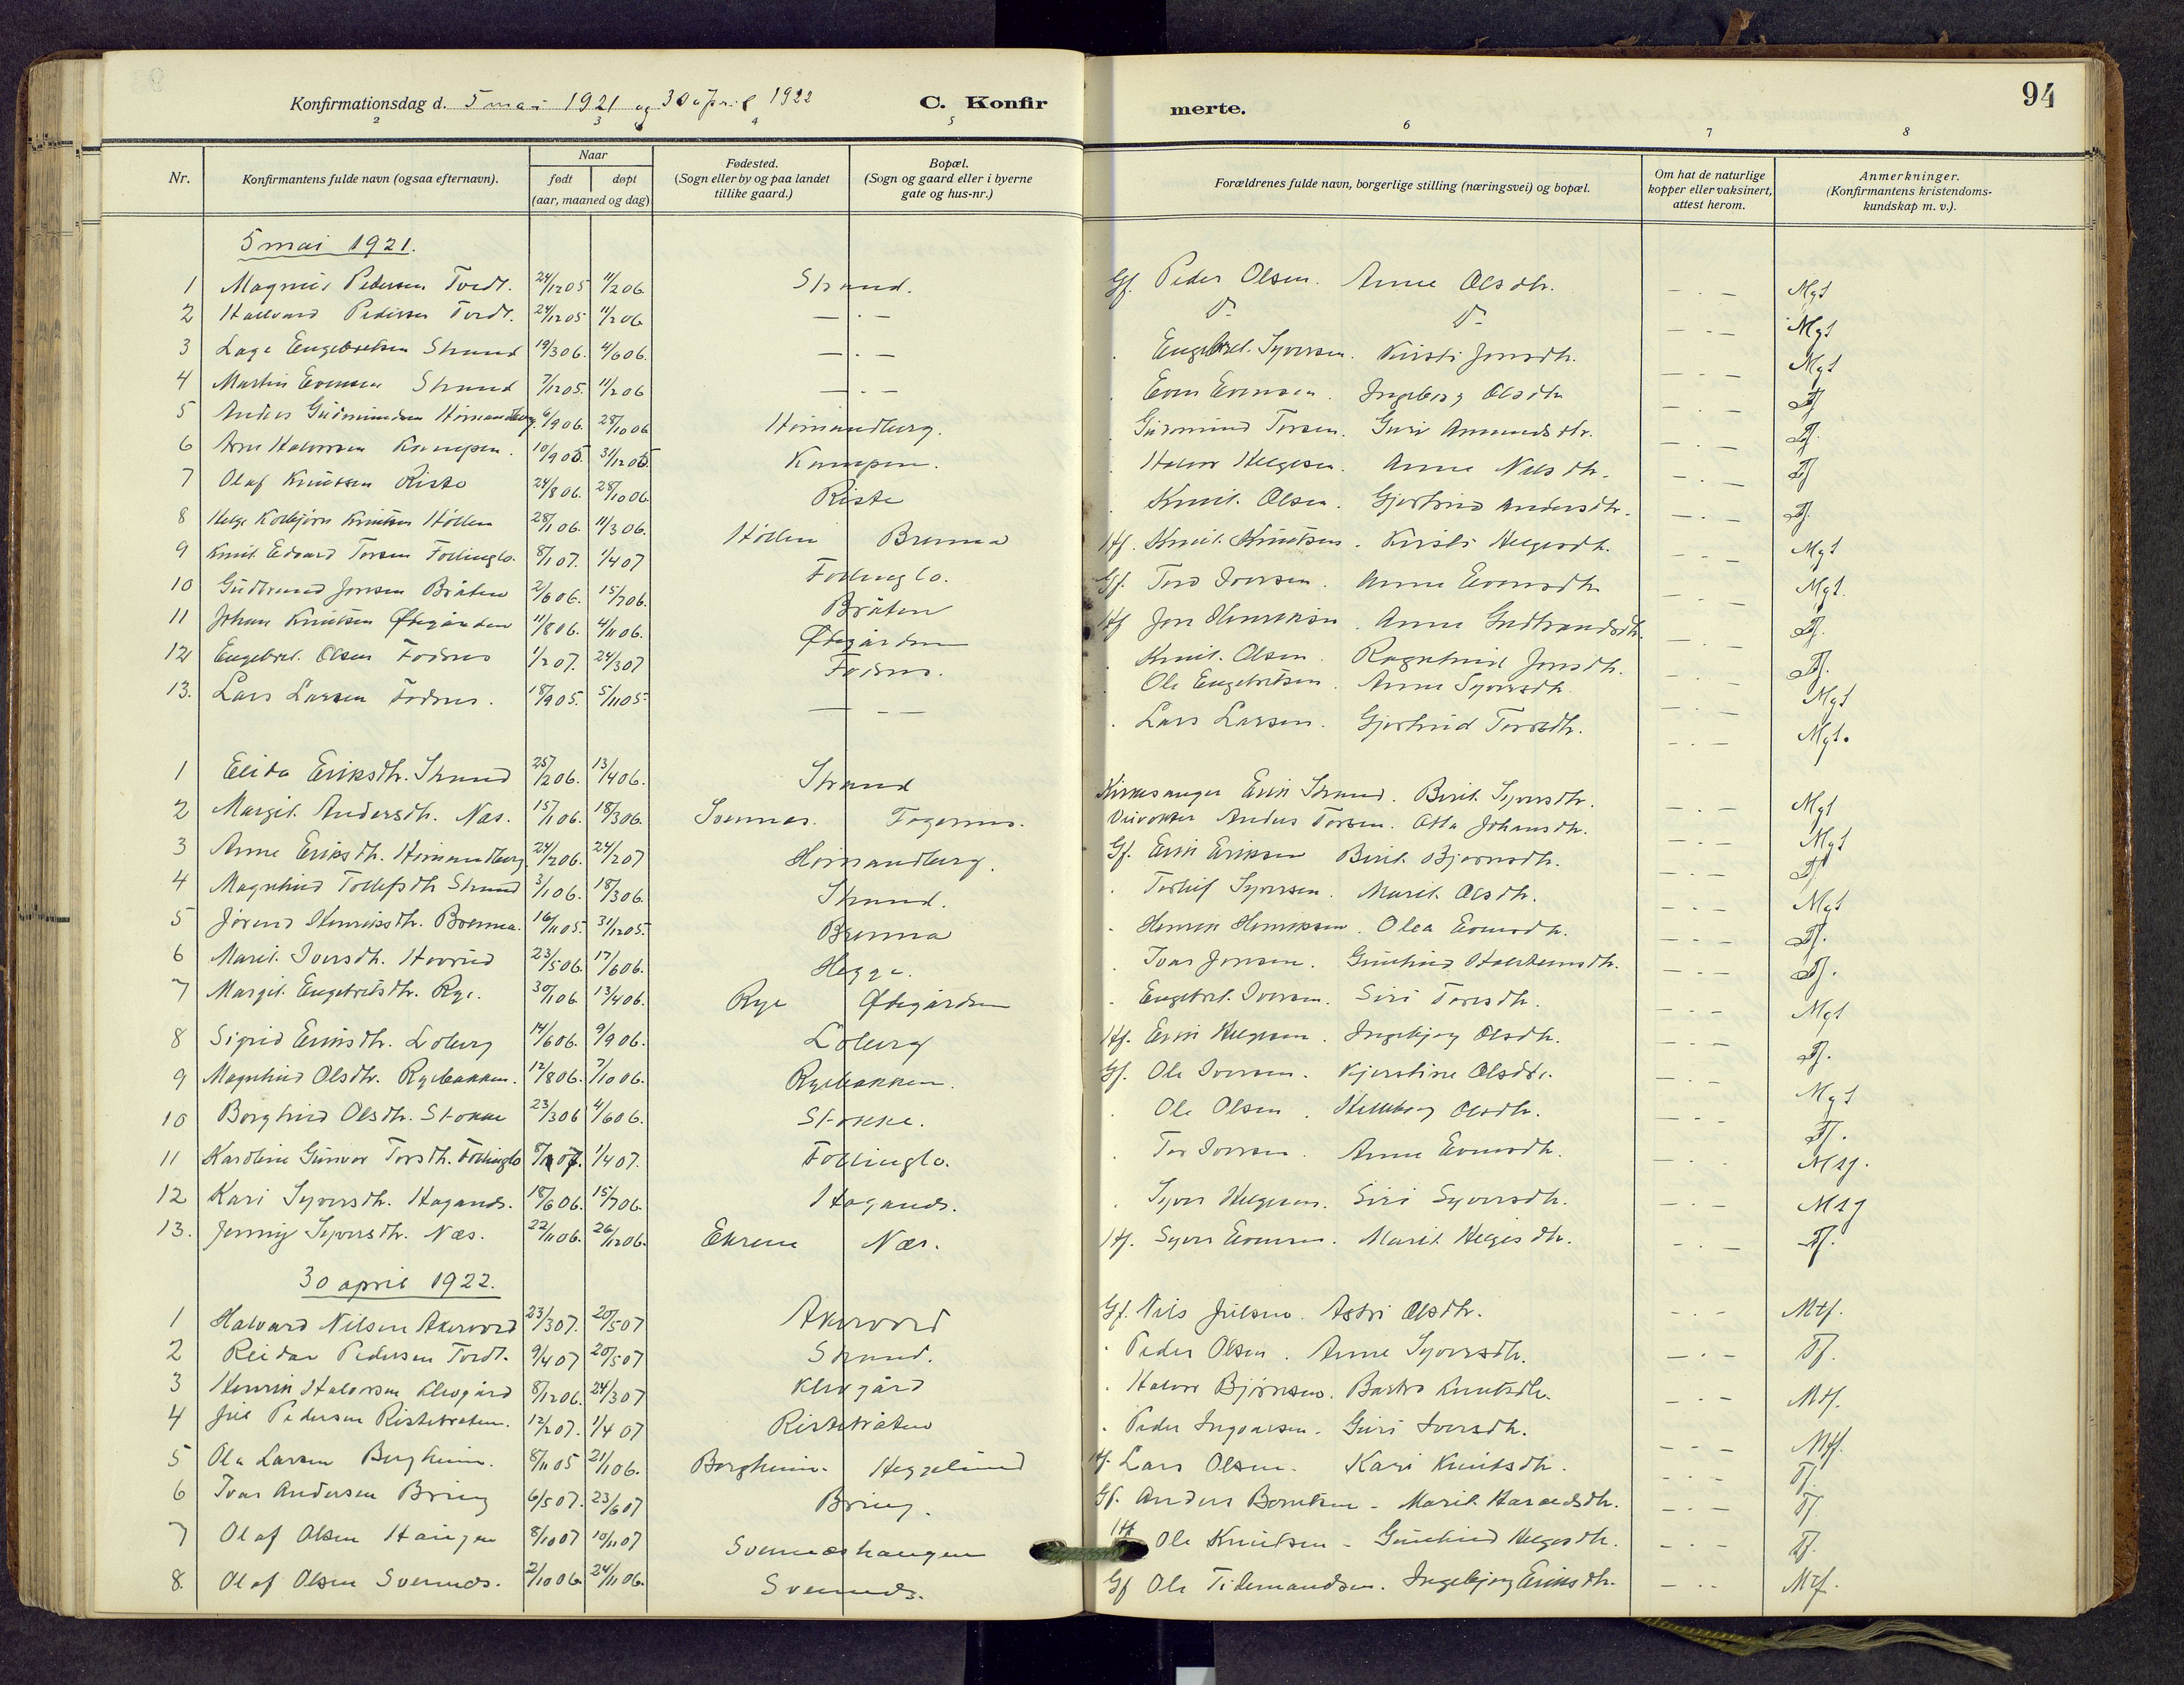 Konfirmationsdag d. 5 mai 1921 og 30 april 1922 C. Konfirmerte. 94
2 3 4 5 6 7 8
Nr. Konfirmantens fulde navn (ogsaa efternavn). Naar født døpt (aar, maaned og dag) Fødested. (Sogn eller by og paa landet tillike gaard.) Bopæl. (Sogn og gaard eller i byerne gate og hus-nr.) Forældrenes fulde navn, borgerlige stilling (næringsvei) og bopæl. Om hat de naturlige kopper eller vaksinert, attest herom. Anmerkninger. (Konfirmantens kristendomskundskap m. v.).
5 mai 1921.
1 Magnus Pedersen Tvedt. 24/12 05 11/2 06. Strand. Gf. Peder Olsen. Anne Olsdtr. — . — Mgt
2 Hallvard Pedersen Tvedt. 24/12 05 11/2 06 — . — Do Do — . — Mgt
3 Lage Engebretsen Strand 19/3 06. 4/6 06. — . — Engebret Syversen. Kirsti Jonsdtr. — . — Mgt
4 Martin Evensen Strand 7/12 05. 11/2 06 — . — Even Evensen. Ingeborg Olsdtr. — . — Tf
5 Anders Gudmundsen Høimandberg. 6/9 06. 28/10 06 Høimandberg. Gudmund Torsen. Guri Amundsdtr. — . — Tf.
6 Arne Halvorsen Kampen. 10/9 05. 31/12 05. Kampen. Halvor Helgesen. Anne Nilsdtr. — . — Tf
7 Olaf Knutsen Riste 24/8 06. 28/10 06. Riste Knut Olsen. Gjertrud Andersdtr. — . — Tf.
8 Helge Kolbjørn Knutsen Hóllen 28/1 06. 11/3 06. Hóllen Brenna Hf. Knut Knutsen. Kirsti Helgesdtr. — . — Mgt
9 Knut Edvard Torsen Follinglo. 8/1 07. 1/4 07 Follinglo. Gf. Tord Iversen. Anne Evensdtr. — . — Mgt.
10 Gudbrand Jonsen Bråten 2/6 06. 15/7 06. Bråten Hf Jon Henriksen. Anne Gudbrandsdtr. — . — Tf.
11 Johan Knutsen Ødegården 11/8 06. 4/11 06. Ødegården Knut Olsen. Ragnhild Jonsdtr. — . — Tf.
12 Engebret Olsen Fodnes 1/2 07. 24/3 07 Fodnes. Ole Engebretsen. Anne Syversdtr. — . — Mgt
13. Lars Larsen Fodnes. 18/9 05. 5/11 05. — — — Lars Larsen. Gjertrud Torsdtr. — . — Mgt.
1 Elida Eriksdtr. Strand 25/2 06. 13/4 06. Strand Kirkesanger Erik Strand. Berit Syversdtr. — . — Mgt
2 Margit Andersdtr. Næs. 15/1 06. 18/3 06. Svennes. Fagernes. Veivokter Anders Torsen. Otta Johansdtr. — . — Mgt
3 Anne Eriksdtr. Høimandberg 24/12 06. 24/2 07 Høimandberg. Gf. Erik Eriksen Berit Bjørnsdtr. — . — Tf
4 Magnhild Tollefsdtr Strand 3/1 06. 18/3 06. Strand. Tollef Syversen. Marit Olsdtr. — . — Mgt
5 Jørend Henriksdtr. Brenna. 16/11 05. 31/12 05. Brenna Henrik Henriksen. Olea Evensdtr. — . — Tf.
6 Marit Iversdtr. Hovrud 23/5 06. 17/6 06. Hegge. Ivar Jonsen. Gunhild Halsteinsdtr. — . — Tf.
7 Margit Engebretsdtr. Rye. 30/1 06. 13/4 06. Rye Ødegården Engebret Iversen. Siri Toresdtr. — . — Mgt
8 Sigrid Eriksdtr. Loberg 14/6 06. 9/9 06. Loberg Hf. Erik Helgesen. Ingebjørg Olsdtr. — . — Tf.
9 Magnhild Olsdtr. Ryebakken. 12/8 06. 7/10 06. Ryebakken. Gf. Ole Iversen. Kjerstine Olsdtr. — . — Mgt
10 Borghild Olsdtr. Stokke 23/3 06 4/6 06. Stokke. Ole Olsen. Helleborg Olsdtr. — Tf.
11 Karoline Gunvor Torsdtr. Follinglo 8/1 07. 1/4 07. Follinglo. Tor Iversen. Anne Evensdtr. — . — Mtg.
12 Kari Syversdtr. Haganes. 18/6 06. 15/7 06. Haganes. Syver Helgesen. Siri Syversdtr. — . — Mtg
13. Jenny Syversdtr. Næs. 22/11 06. 26/12 06. Ekren Næs. Hf. Syver Evensen. Marit Helgesdtr. — . — Tf.
30 april 1922.
1 Halvard Nilsen Akervold 23/3 07. 20/5 07 Akervold Gf. Nils Julsen. Astri Olsdtr. — . — Mtf.
2 Reidar Pedersen Tvedt. 9/4 07 20/5 07 Strand. Peder Olsen. Anne Syversdtr. — . — Tf.
3 Henrik Halvorsen Klevgård 8/12 06. 24/3 07 Klevgård Halvor Bjørnsen. Barbro Knutsdtr. — . — Mtf.
4 Jul Pedersen Ristebråten. 12/2 07. 1/4 07 Ristebråten Peder Ingvalsen. Guri Iversdtr. — . — Mtf.
5 Ola Larsen Bergheim. 8/11 05 21/1 06. Bergheim. Heggelund Hf. Lars Olsen. Kari Knutsdtr. — . — Tf.
6 Ivar Andersen Bring 6/5 07. 23/6 07 Bring. Gf. Anders Berntsen. Marit Haraldsdtr. — . — Tf.
7 Olaf Olsen Haugen 8/10 07 10/11 07 Svenneshaugen Hf Ole Knutsen - Gunhild Helgesdtr. — . — Tf.
8. Olaf Olsen Svennes. 2/10 06. 24/11 06. Svennes. Gf Ole Tidemandsen. Ingebjørg Eriksdtr. — . . Mtf.